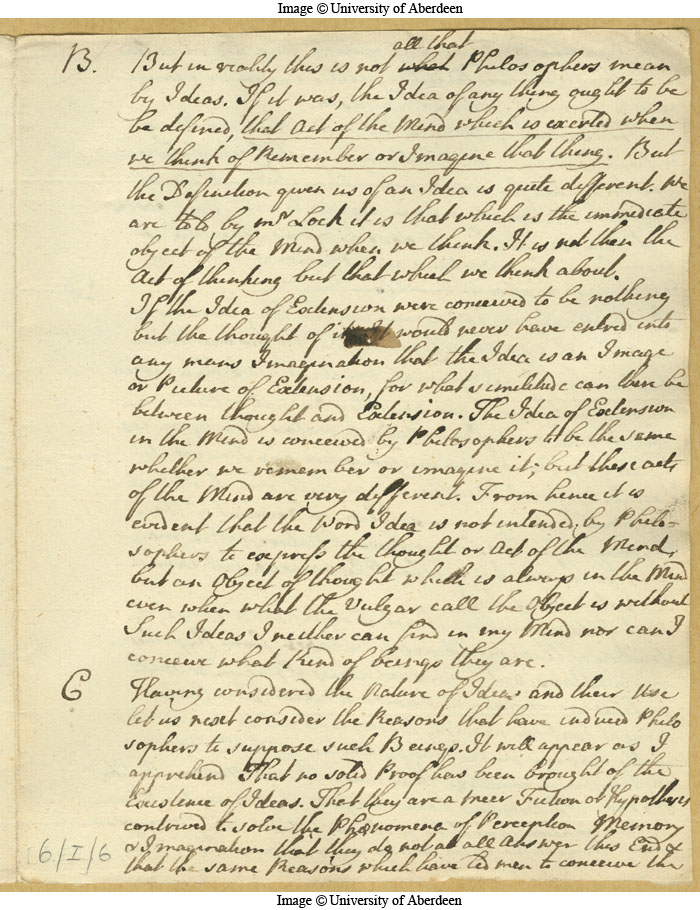 Image © University of Aberdeen
all that
B. But in reality this is not what Philosophers mean
by Ideas. If it was, the Idea of any thing ought to be
be defined, that Act of the Mind which is exerted when
we think of Remember or Imagine that thing. But
the Definition given us of an Idea is quite different. We
are told by Mr Lock it is that which is the immediate
object of the Mind when we think. It is not then the
Act of thinking but that which we think about.
If the Idea of Extension were conceived to be nothing
but the thought of it would never have entred into
any mans Imagination that the Idea is an Image
or Picture of Extension, for what similitude can there be
between thought and Extension. The Idea of Extension
in the Mind is conceived by Philosophers to be the same
whether we remember or imagine it; but these acts
of the Mind are very different. From hence it is
evident that the Word Idea is not intended by Philo-
sophers to express the thought or Act of the Mind,
but an Object of thought which is always in the Mind
even when what the Vulgar call the Object is without
Such Ideas I neither can find in my Mind nor can I
conceive what Kind of beings they are.
C Having considered the Nature of Ideas and their Use
let us next consider the Reasons that have induced Philo
sophers to suppose such Beings. It will appear as I
apprehend That no solid Proof has been brought of the
Existence of Ideas. That they are a meer Fiction or Hypothesis
contrived to solve the Phænomena of Perception Memory
& Imagination that they do not at all Answer this End &
that the same Reasons which have led men to conceive the
6/I/6
Image © University of Aberdeen